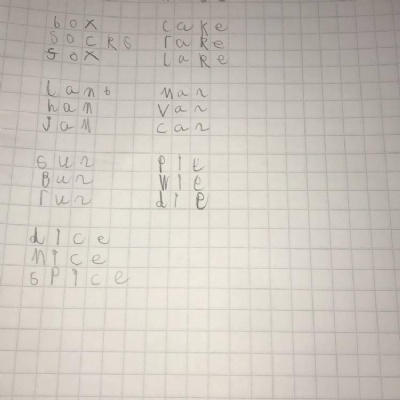 box cake
socks rake
sox lake
lamb man
ham van
jam can
sun pie
Bun wie
run die
dice
nice
spice